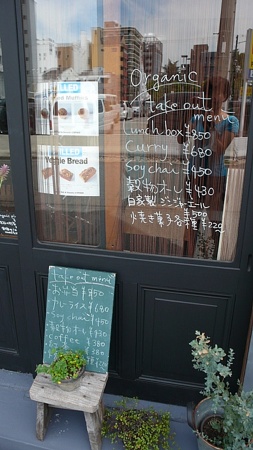 Organic
take out
menu
Lunch box ¥850
Curry ¥680
Soy chai ¥450
穀物オレ ¥430
自家製ジンジャーエール
¥500
焼き菓子各種 ¥220
Bread
take out menu
お弁当 ¥850
カレーライス ¥680
Soy chai ¥450
穀物オレ ¥430
coffee ¥380
¥380
¥380